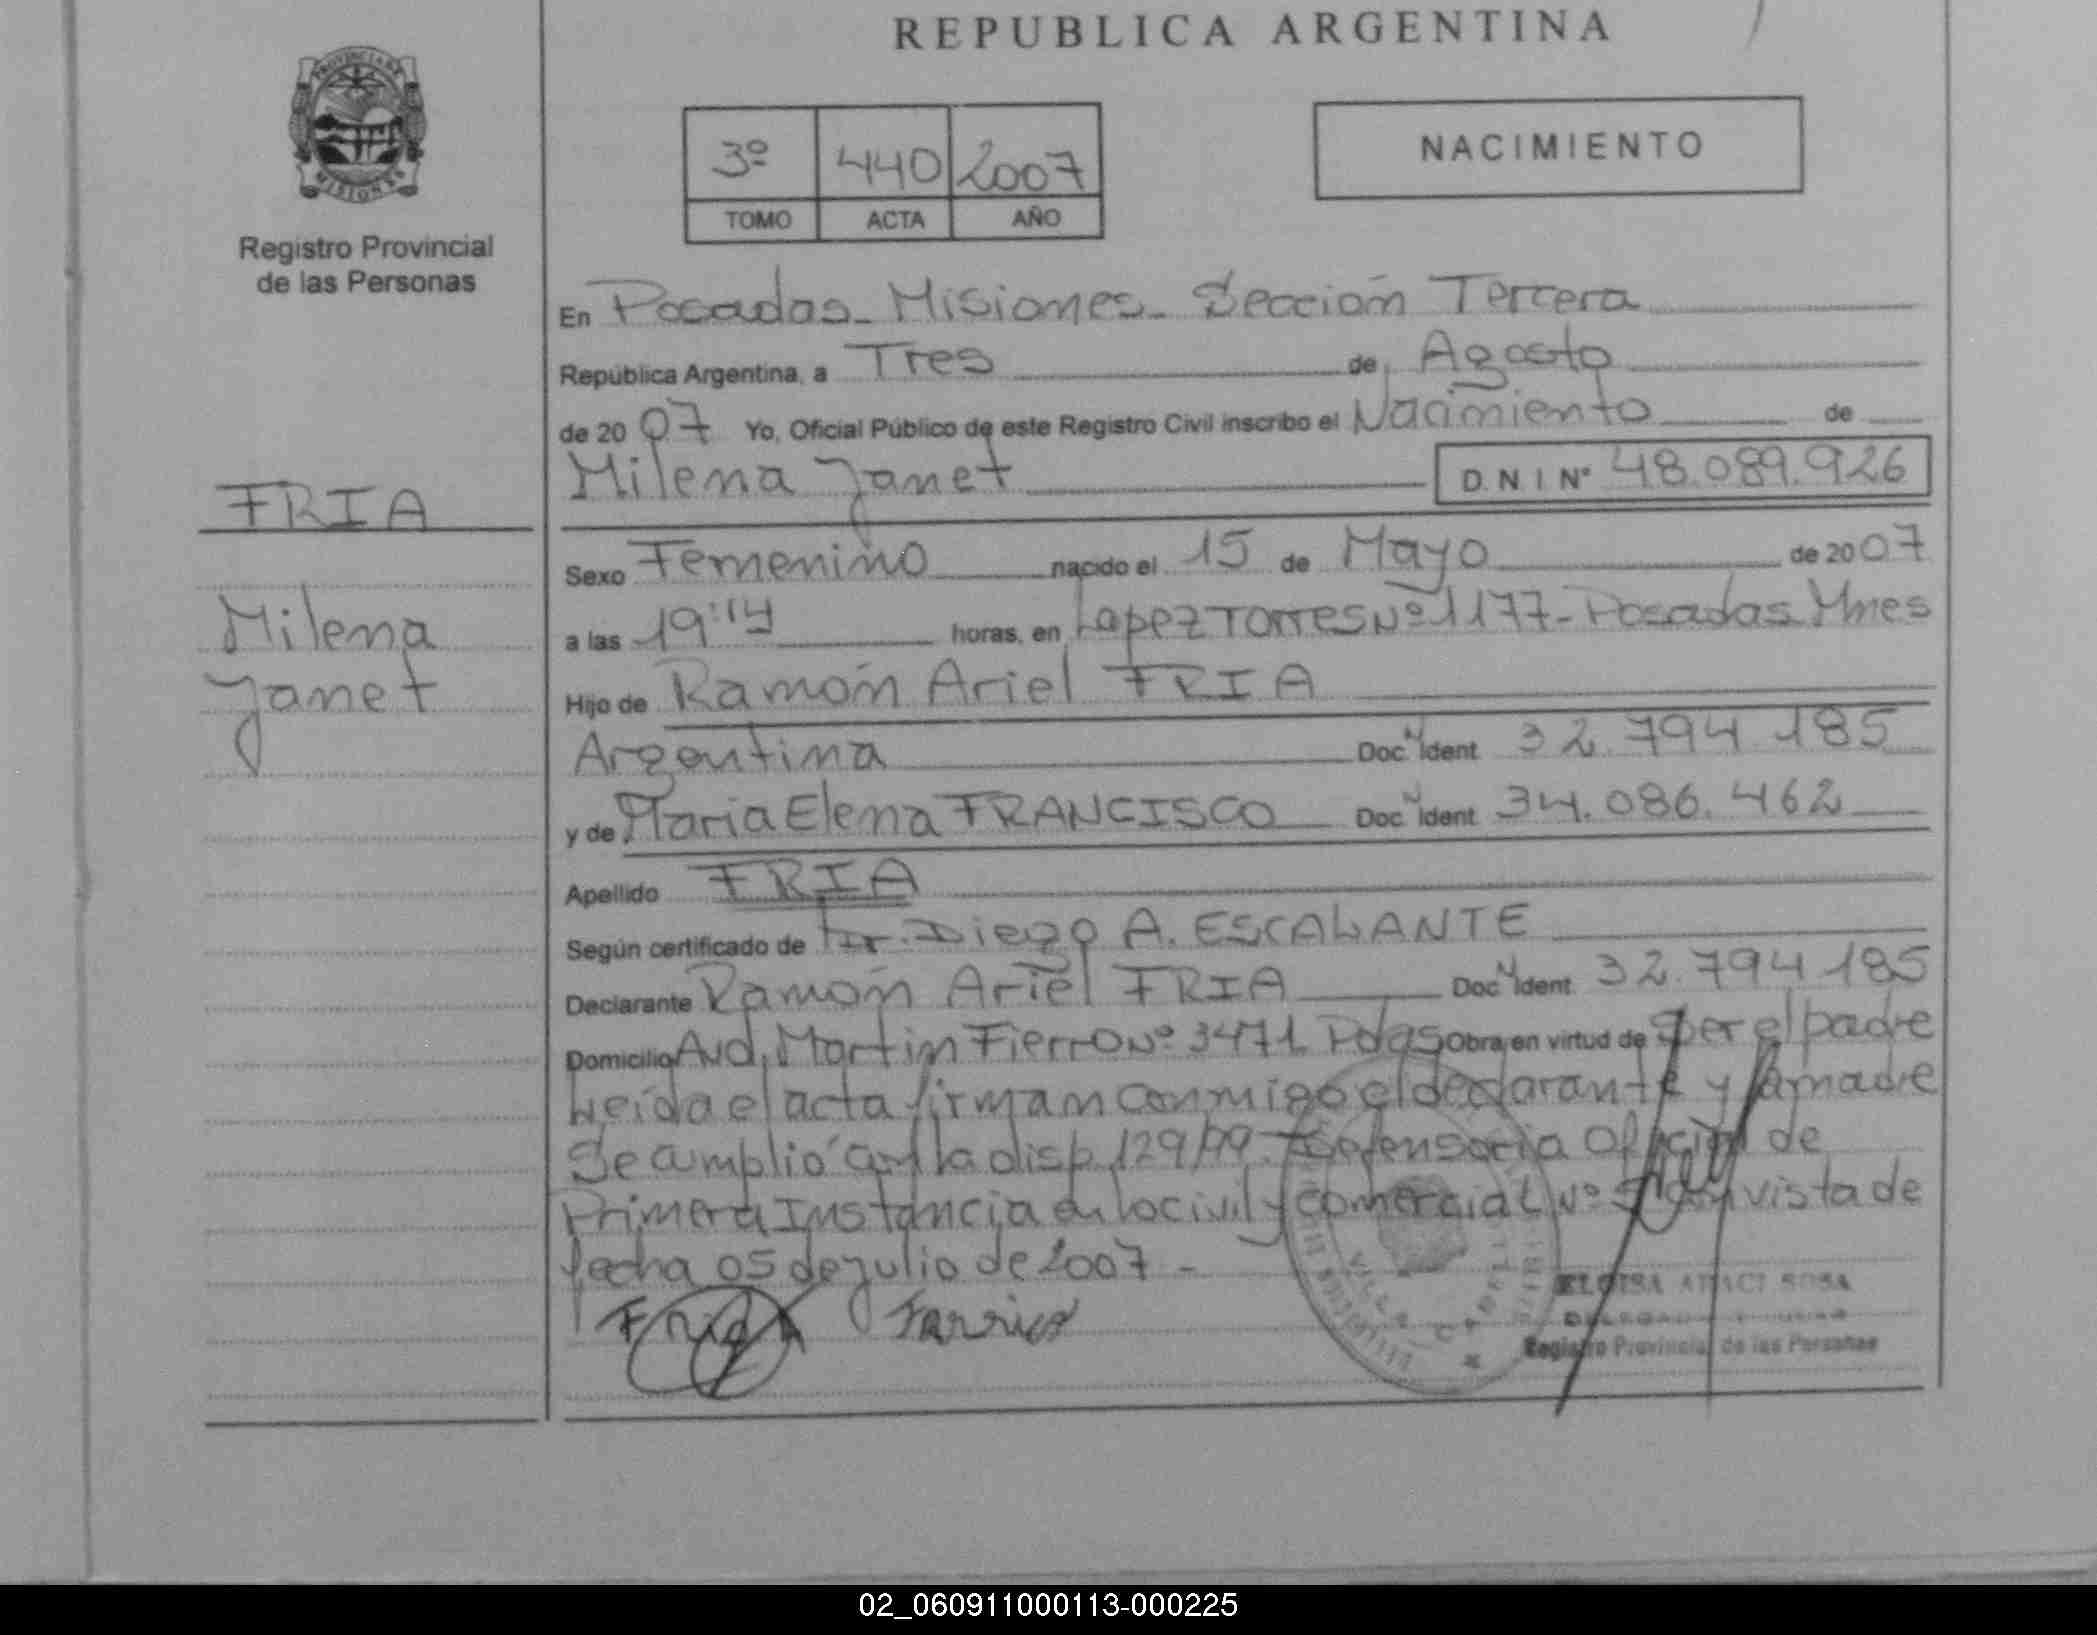 REPUBLICA ARGENTINA
PROVINCIA DE
MISIONES
Registro Provincial
de las Personas
3º 440 2007
TOMO ACTA AÑO
NACIMIENTO
En Posadas - Misiones - Sección Tercera
República Argentina, a Tres de Agosto
de 2007 Yo, Oficial Público de este Registro Civil inscribo el Nacimiento de
Milena Janet D.N.I Nº 48.089.926
FRIA
Sexo Femenino nacido el 15 de Mayo de 2007
Milena
Janet
a las 19:14 horas, en Lopez Torres Nº 1177 - Posadas Mnes
Hijo de Ramón Ariel FRIA
Argentina Doc. Ident. 32.794.185
y de Maria Elena FRANCISCO Doc. Ident. 34.086.462
Apellido FRIA
Según certificado de Dr. Diego A. ESCALANTE
Declarante Ramón Ariel FRIA Doc. Ident. 32.794.185
Domicilio Avd. Martin Fierro Nº 3471 Pdas Obra en virtud de Ser el padre
Leída el acta firman conmigo el declarante y la madre
Se amplió la disp. 129/99 - Defensoria Oficial de
Primera Instancia en lo civil y comercial Nº vista de
fecha 05 de julio de 2007 -
Fria
SOSA
Registro Provincial de las Personas
02_060911000113-000225